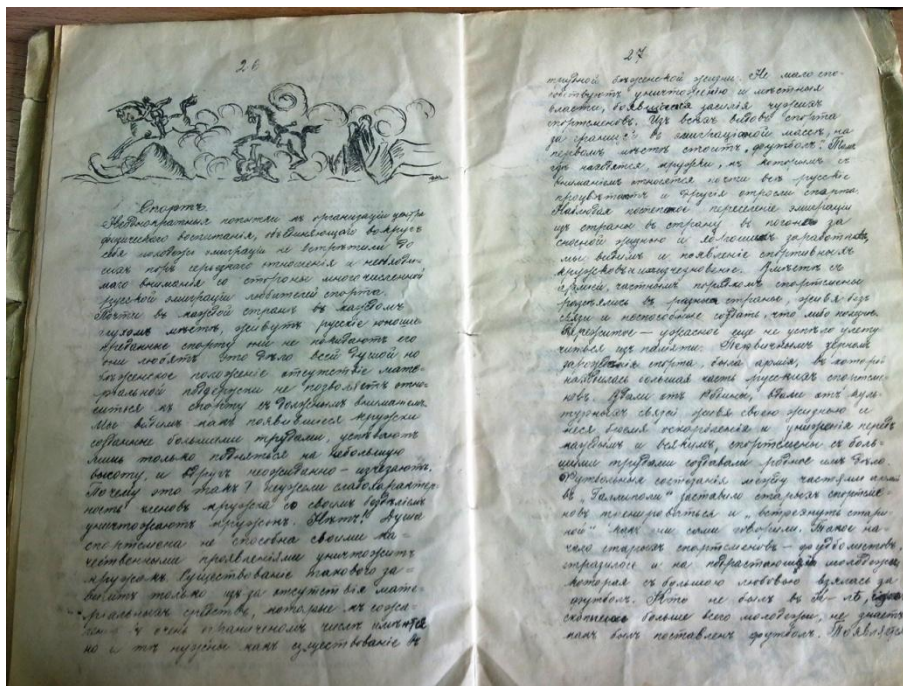 26
Спортъ.
Неоднократныя попытки къ организаціи центра
физическаго воспитанія, объединяющаго вокругъ
себя молодежь эмиграціи не встрѣтили до
сихъ поръ серьезнаго отношенія и необходи-
маго вниманія со стороны многочисленной
русской эмиграціи любителей спорта.
Почти въ каждой странѣ въ каждомъ
глухомъ мѣстѣ, живутъ русскіе юноши
преданные спорту они не покидаютъ его
они любятъ это дѣло всей душой но
бѣженское положеніе отсутствіе мате-
ріальной поддержки не позволяетъ отно-
ситься къ спорту съ должнымъ вниманіемъ.
Мы видимъ какъ появившіеся кружки
созданные большими трудами, успѣваютъ
лишь только подняться на небольшую
высоту, и вдругъ неожиданно — изчезаютъ.
Почему это такъ? неужели слабохарактер-
ность членовъ кружка со своимъ
уничтожаютъ кружокъ. Нѣтъ!! Душа
спортсмена не способна своими ка-
чественными проявленіями уничтожить
кружокъ. Существованіе таковаго за-
виситъ только из за отсутствія мате-
ріальныхъ средствъ, которые къ сожа-
ленію въ очень ограниченомъ числѣ имѣются
но и тѣ нужны какъ существованіе въ
27
трудной бѣженской жизни. Не мало спо-
собствуютъ уничтоженію и мѣстныя
власти, боявшіеся засилія чужихъ
спортсменовъ. Изъ всѣхъ видовъ спорта
за границей въ эмиграціоной массѣ, на
первомъ мѣстѣ стоитъ „футболъ“. Тамъ
гдѣ находятся кружки, къ которымъ съ
вниманіемъ относятся почти всѣ русскіе
процвѣтаютъ и другія отросли спорта.
Наблюдая постепенное переселеніе эмиграціи
изъ страны въ страну въ погонѣ за
сносной жизнью и лѣгкимъ заработкомъ,
мы видимъ и появленіе спортивныхъ
кружковъ и изщезновеніе. Вмѣстѣ съ
арміей, частнымъ порядкомъ спортсмены
разъѣхались въ разныя страны, живя безъ
связи и неспособные создать, что либо
Пережитое — ужасное еще не успѣло улету-
читься изъ памяти. Первичнымъ
зарожденія спорта, была армія, въ которой
находилась большая часть русскихъ спортсме-
новъ. Вдали отъ Родины, вдали отъ куль-
турныхъ связей живя своею жизнью и
неся бремя оскорбленія и униженія передъ
каждымъ и всякимъ, спортсмены съ боль-
шими трудами создавали родное имъ дѣло.
Футбольныя состязанія между частями арміи
въ „Галлиполи“ заставило старыхъ спортсме-
новъ тренироваться и „встряхнуть стари-
ной“ какъ они сами говорили. Такое на-
чало старыхъ спортсменовъ — футболистовъ,
отразилось и на подрастающей молодежи,
которая съ большою любовью взялась за
футболъ. Кто не былъ въ
скопилось больше всего молодежи, не знаетъ
какъ былъ поставленъ футболъ.